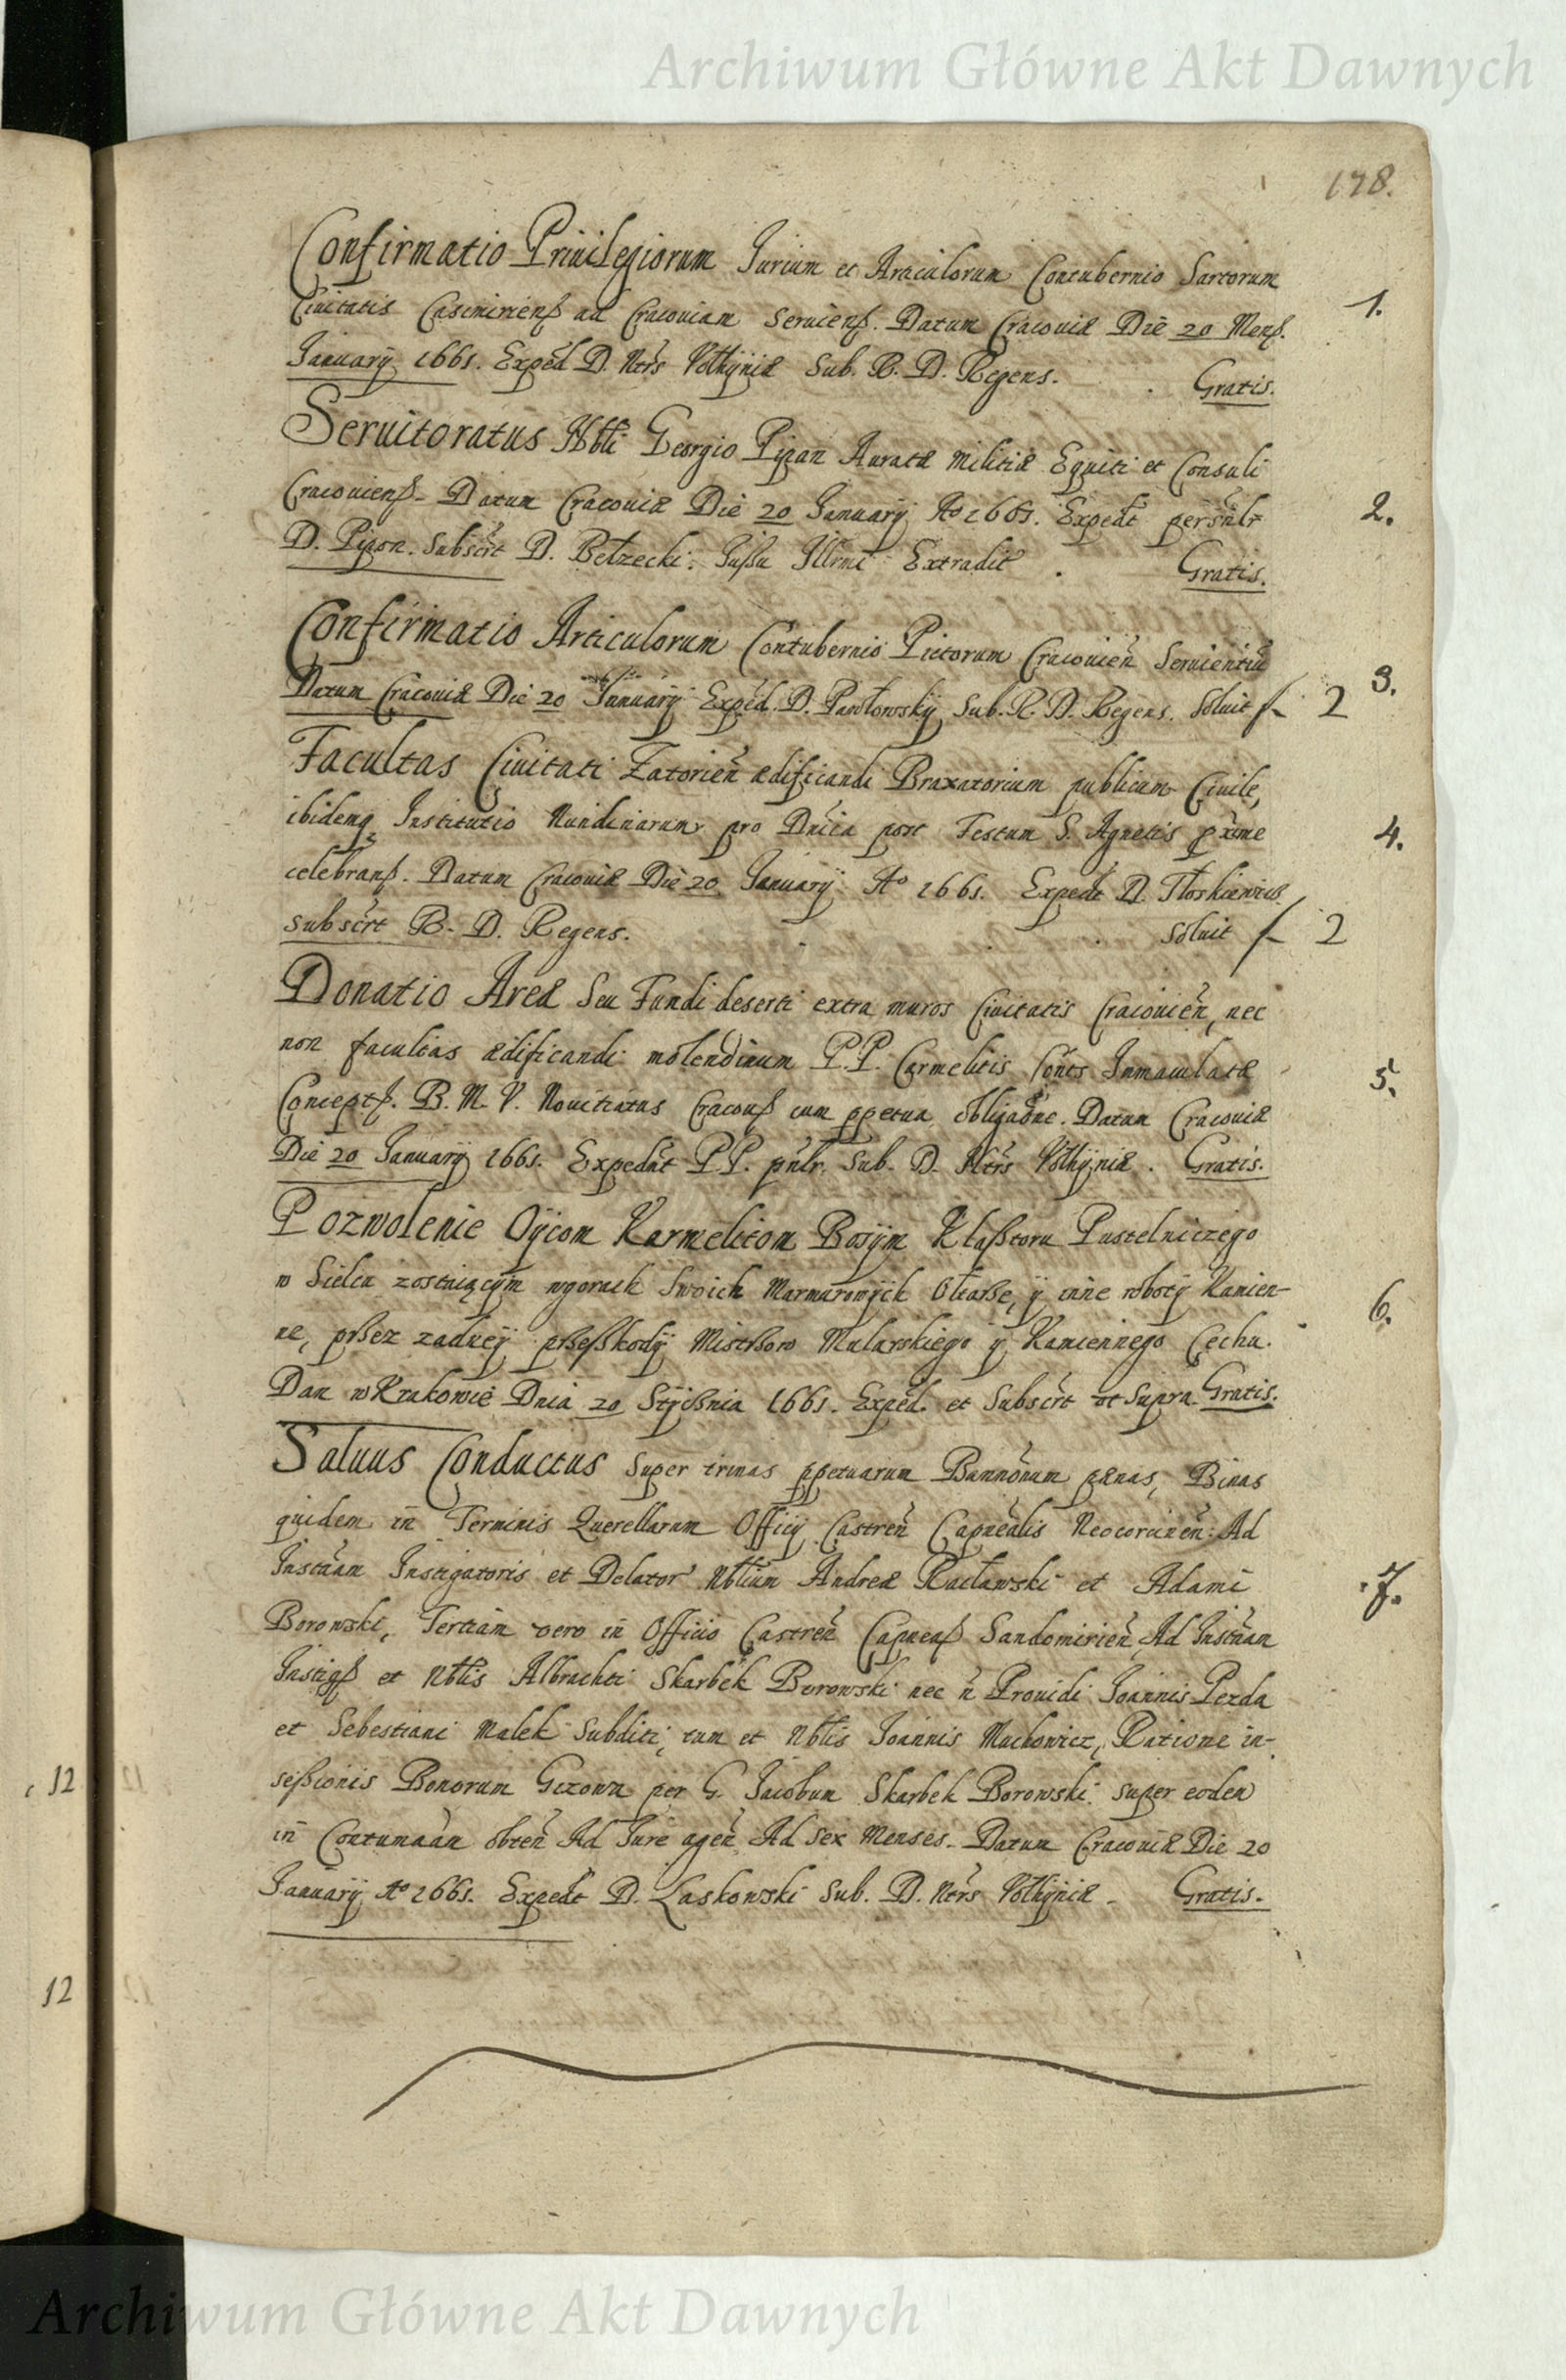 Archiwum Główne Akt Dawnych
178.
Confirmatio Priuilegiorum Jurium et Articulorum Contubernio Sartorum
Ciuitatis Casimiriensß ad Cracouiam Seruiensß. Datum Cracouiæ Die 20 Mensß.
January 1661. Exped D. Ntrs Volhyniæ Sub. R. D. Regens. Gratis.
1.
Seruitoratus Nbli Georgio Pipan Auratæ Militiæ Equiti et Consuli
Cracouiensß. Datum Cracouiæ Die 20 January Ao 1661. Expedt persnlr
D. Pipan. Subscrt D. Bełzecki. Jußu Illrmi Extradit. Gratis.
2.
Confirmatio Articulorum Contubernio Pictorum Cracouien Seruientiu
Datum Cracouiæ Die 20 January Exped. D. Pawłowsky Sub. R. D. Regens. Soluit f 2
3.
Facultas Ciuitati Zatorien ædificandi Braxatorium publicum Ciuile,
ibidemq Institutio Nundinarum pro Dnica post Festum S. Agnetis pxime
celebransß. Datum Cracouiæ Die 20 January Ao 1661. Expedt D.
Subscrt R. D. Regens. Soluit f 2
4.
Donatio Areæ Seu Fundi deserti extra muros Ciuitatis Cracouien, nec
non facultas ædificandi molendinum P.P. Carmelitis Conts Immaculatæ
Conceptß. B. M. V. Nouitiatus Cracouß cum ppetua obligaone. Datum Cracouiæ
Die 20 January 1661. Expednt PP. pnlr. Sub. D. Ntrs Volhyniæ. Gratis.
5.
Pozwolenie Oycom Karmelitom Bosym Klaßtoru Pustelniczego
w Sielcu zostaiącym wgorach Swoich Marmurowych Ołtarße, y inne roboty Kamien-
ne, prßez zadney prßeßkody Mistrßow Mularskiego y Kamiennego Cechu.
Dan wKrakowie Dnia 20 Stycßnia 1661. Exped. et Subscrt ut Supra. Gratis.
6.
Saluus Conductus Super trinas ppetuarum Bannonum pænas, Binas
quidem in Terminis Querellarum Officy Castren Capnealis Neocorcinen: Ad
Instnam Instigatoris et Delator Nblium Andreæ Racławski et Adami
Borowski, Tertiam vero in Officio Castren Capneaß Sandomirien, Ad Instnam
Instigß et Nblis Albrachti Skarbek Borowski nec n Prouidi Joannis Perda
et Sebestiani Malek Subditi, tum et Nblis Joannis Machowicz, Ratione in-
seßionis Bonorum per G. Jacobum Skarbek Borowski super eodem
in Contumaan obten Ad Jure agen Ad Sex Menses. Datum Cracouiæ Die 20
January Ao 1661. Expedt D. Laskowski Sub. D. Ntrs Volhyniæ. Gratis.
7.
12
12
Archiwum Główne Akt Dawnych